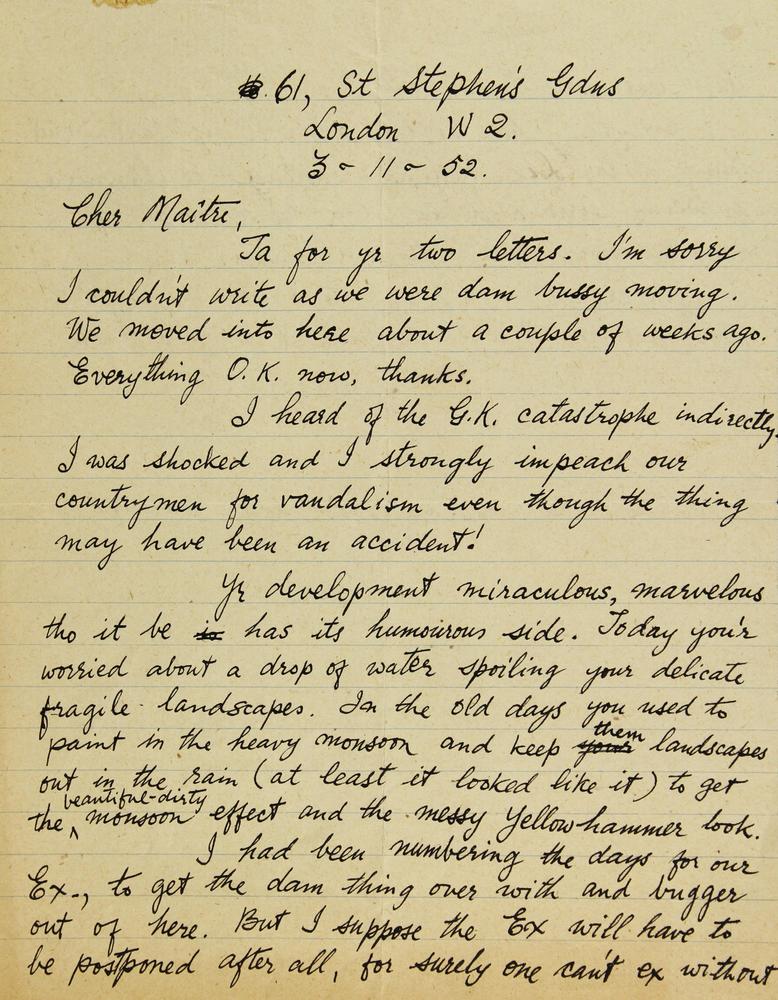 61, St Stephen's Gdns
London W 2.
3 - 11 - 52.
Cher Maître,
Ta for yr two letters. I'm sorry
I couldn't write as we were dam bussy moving.
We moved into here about a couple of weeks ago.
Everything O.K. now, thanks.
I heard of the G.K. catastrophe indirectly.
I was shocked and I strongly impeach our
countrymen for vandalism even though the thing
may have been an accident!
Yr development miraculous, marvelous
tho it be is has its humourous side. Today you'r
worried about a drop of water spoiling your delicate
fragile landscapes. In the old days you used to
paint in the heavy monsoon and keep your them landscapes
out in the rain (at least it looked like it) to get
the beautiful-dirty monsoon effect and the messy Yellowhammer look.
I had been numbering the days for our
Ex., to get the dam thing over with and bugger
out of here. But I suppose the Ex will have to
be postponed after all, for surely one can't ex without